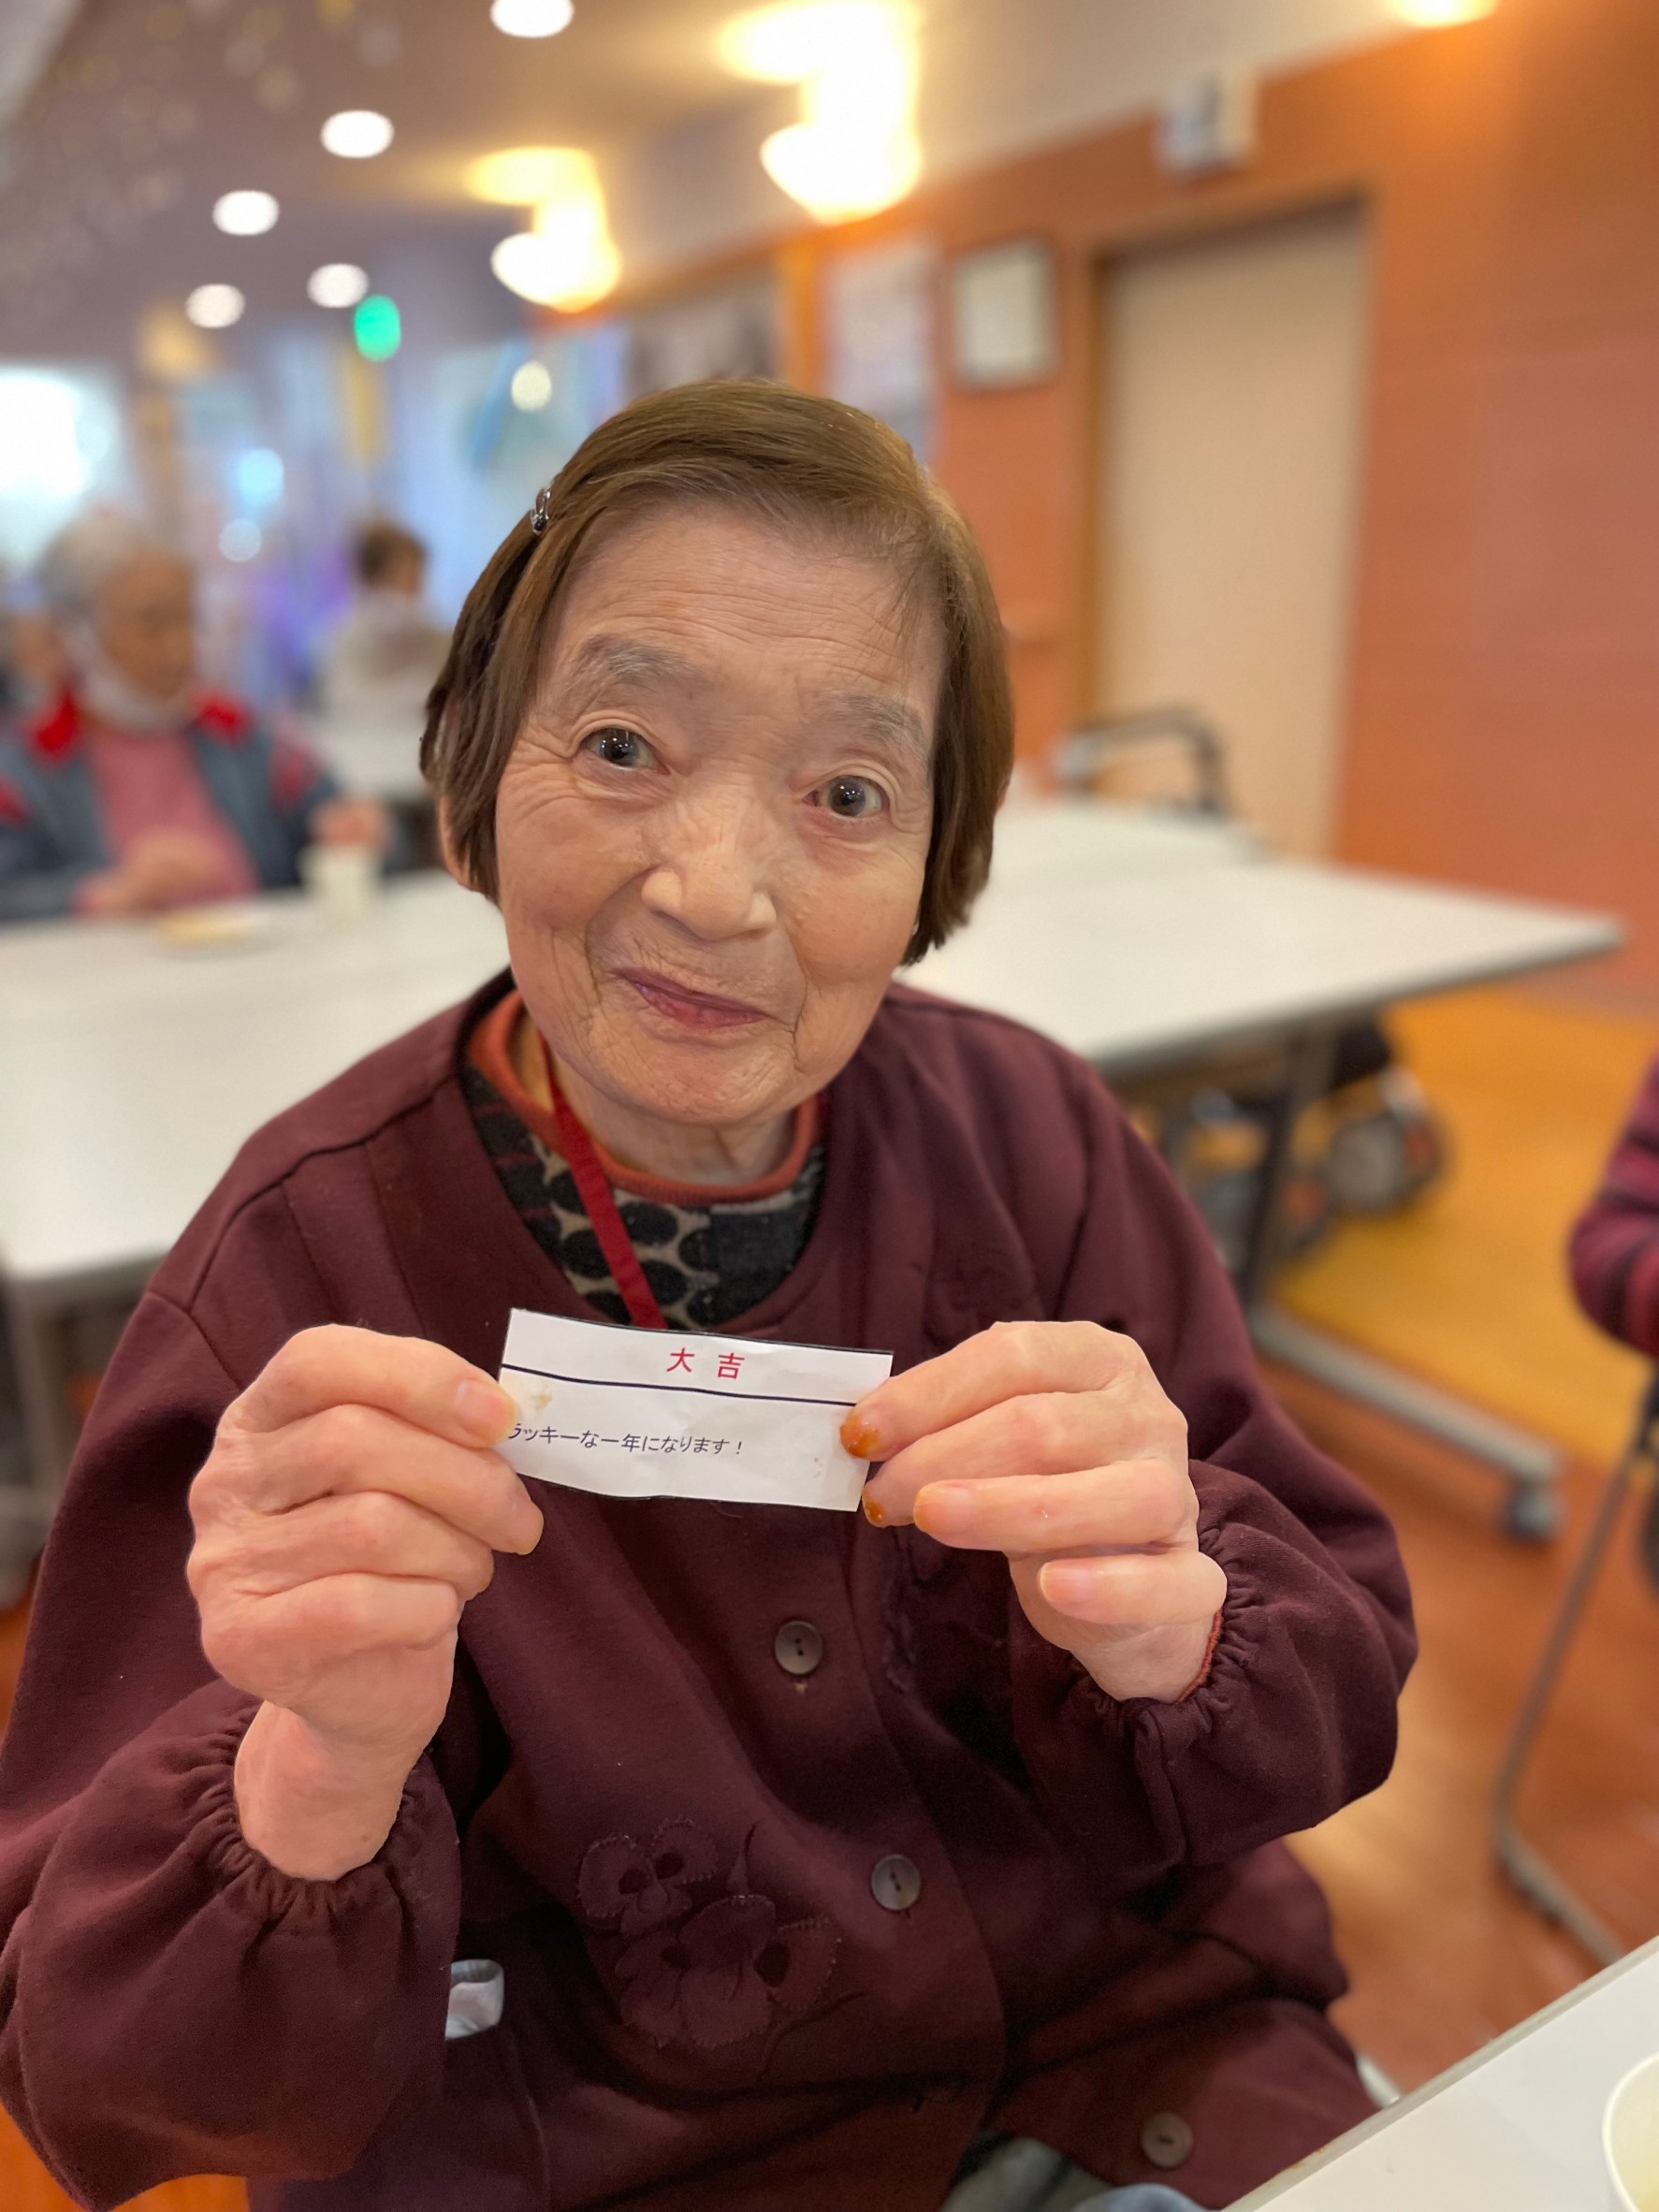 大吉
ラッキーな一年になります！